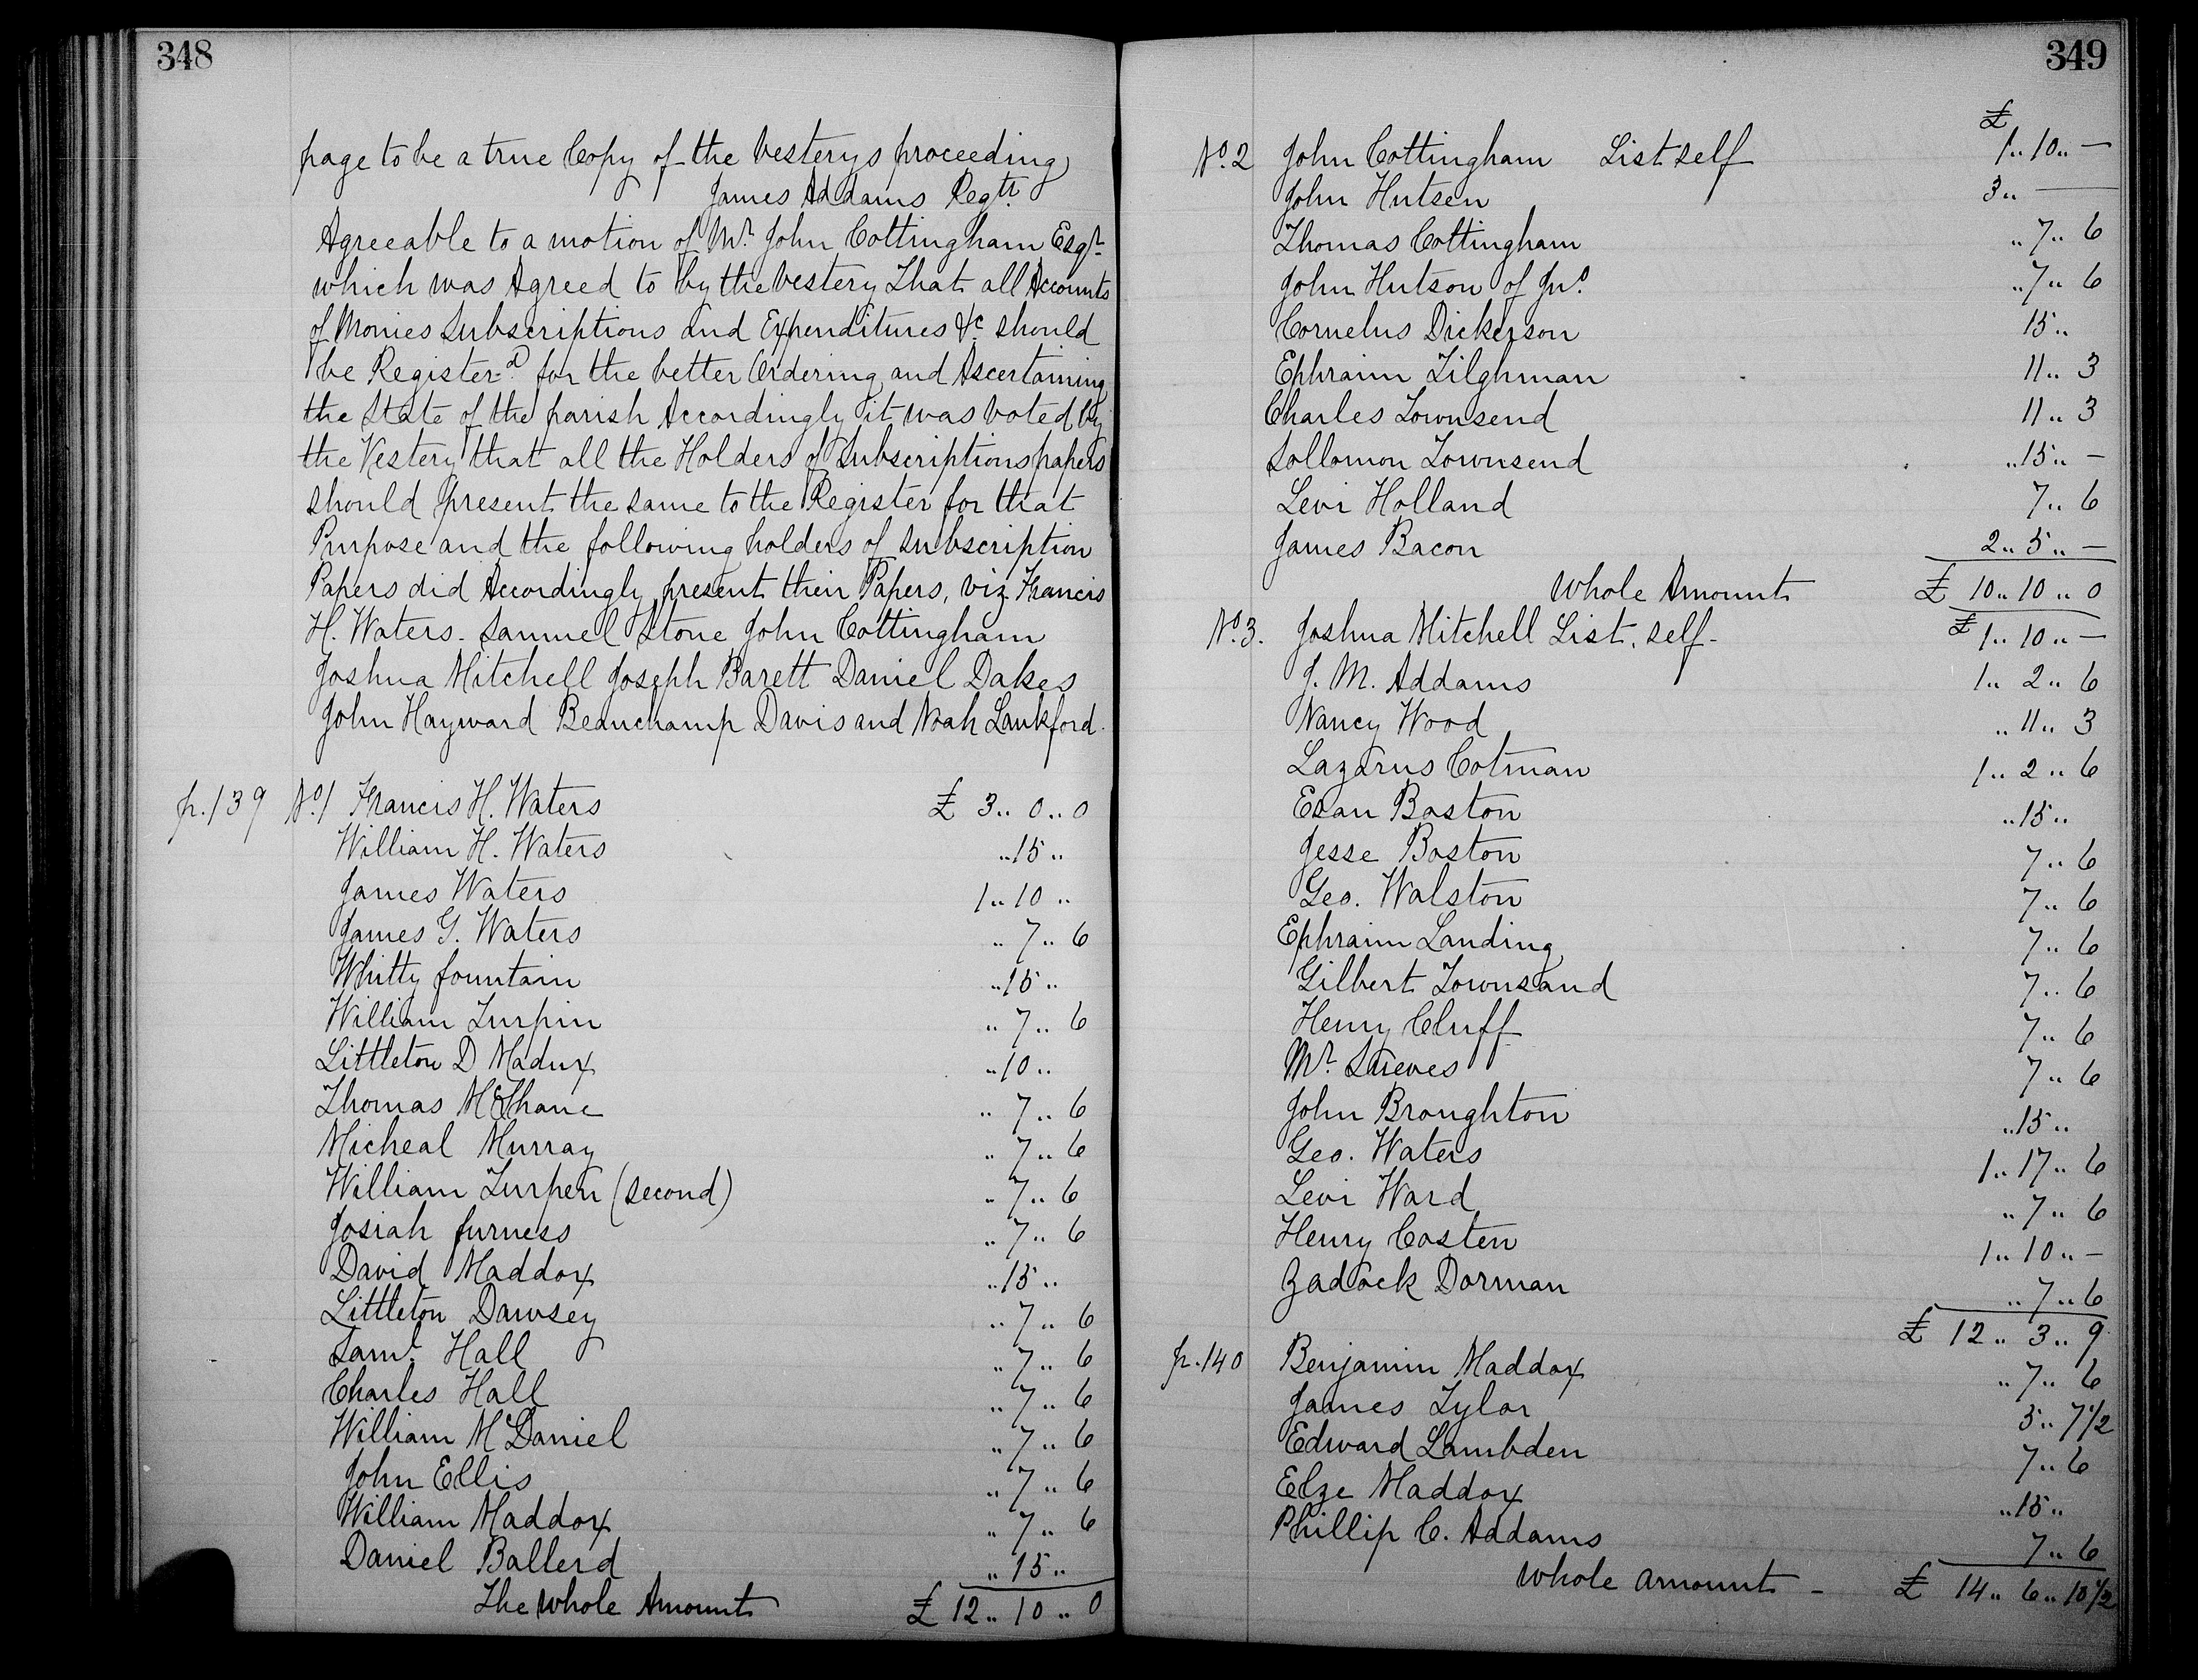 348
page to be a true Copy of the Vesterys proceeding
James Addams Regtr.
Agreeable to a motion of Mr. John Cottingham Esqr.
which was Agreed to by the Vestery That all Accounts
of Monies Subscriptions and Expenditures &c. should
be Register-d for the better Ordering and Ascertaining
the State of the parish Accordingly it was voted by
the Vestery that all the Holders of Subscriptions papers
should present the same to the Register for that
Purpose and the following holders of Subscription
Papers did Accordingly present their Papers, viz. Francis
H. Waters. Samuel Stone John Cottingham
Joshua Mitchell Joseph Barett Daniel Dakes
John Hayward Beauchamp Davis and Noah Lankford.
p.139 No.1 Francis H. Waters £ 3.. 0.. 0
William H. Waters ..15..
James Waters 1..10..
James G. Waters ..7..6
Whitty fountain ..15..
William Turpin ..7..6
Littleton D Madux ..10..
Thomas McShane ..7..6
Micheal Murray ..7..6
William Turpen (second) ..7..6
Josiah furness ..7..6
David Maddox ..15..
Littleton Dawsey ..7..6
Saml. Hall ..7..6
Charles Hall ..7..6
William McDaniel ..7..6
John Ellis ..7..6
William Maddox ..7..6
Daniel Ballerd ..15..
The whole Amount £ 12..10..0
349
£
No.2 John Cottingham List self 1..10..—
John Hutsen 3..—
Thomas Cottingham ..7..6
John Hutson of Jno. ..7..6
Cornelus Dickerson 15..
Ephraim Tilghman 11..3
Charles Townsend 11..3
Sollomon Townsend ..15..—
Levi Holland 7..6
James Bacon 2..5..—
whole Amount £ 10..10..0
No.3. Joshua Mitchell List. self- £ 1..10..—
J. M. Addams 1..2..6
Nancy Wood ..11..3
Lazarus Cotman 1..2..6
Esau Boston ..15..
Jesse Boston 7..6
Geo. Walston 7..6
Ephraim Landing 7..6
Gilbert Townsand 7..6
Henry Cluff 7..6
Mr. 7..6
John Broughton ..15..
Geo. Waters 1..17..6
Levi Ward ..7..6
Henry Costen 1..10..—
Zadock Dorman ..7..6
£ 12..3..9
p.140 Benjamin Maddox ..7..6
James Tylor 5..7½
Edward Lambden 7..6
Elze Maddox ..15..
Phillip C. Addams 7..6
whole amount - £ 14..6..10½